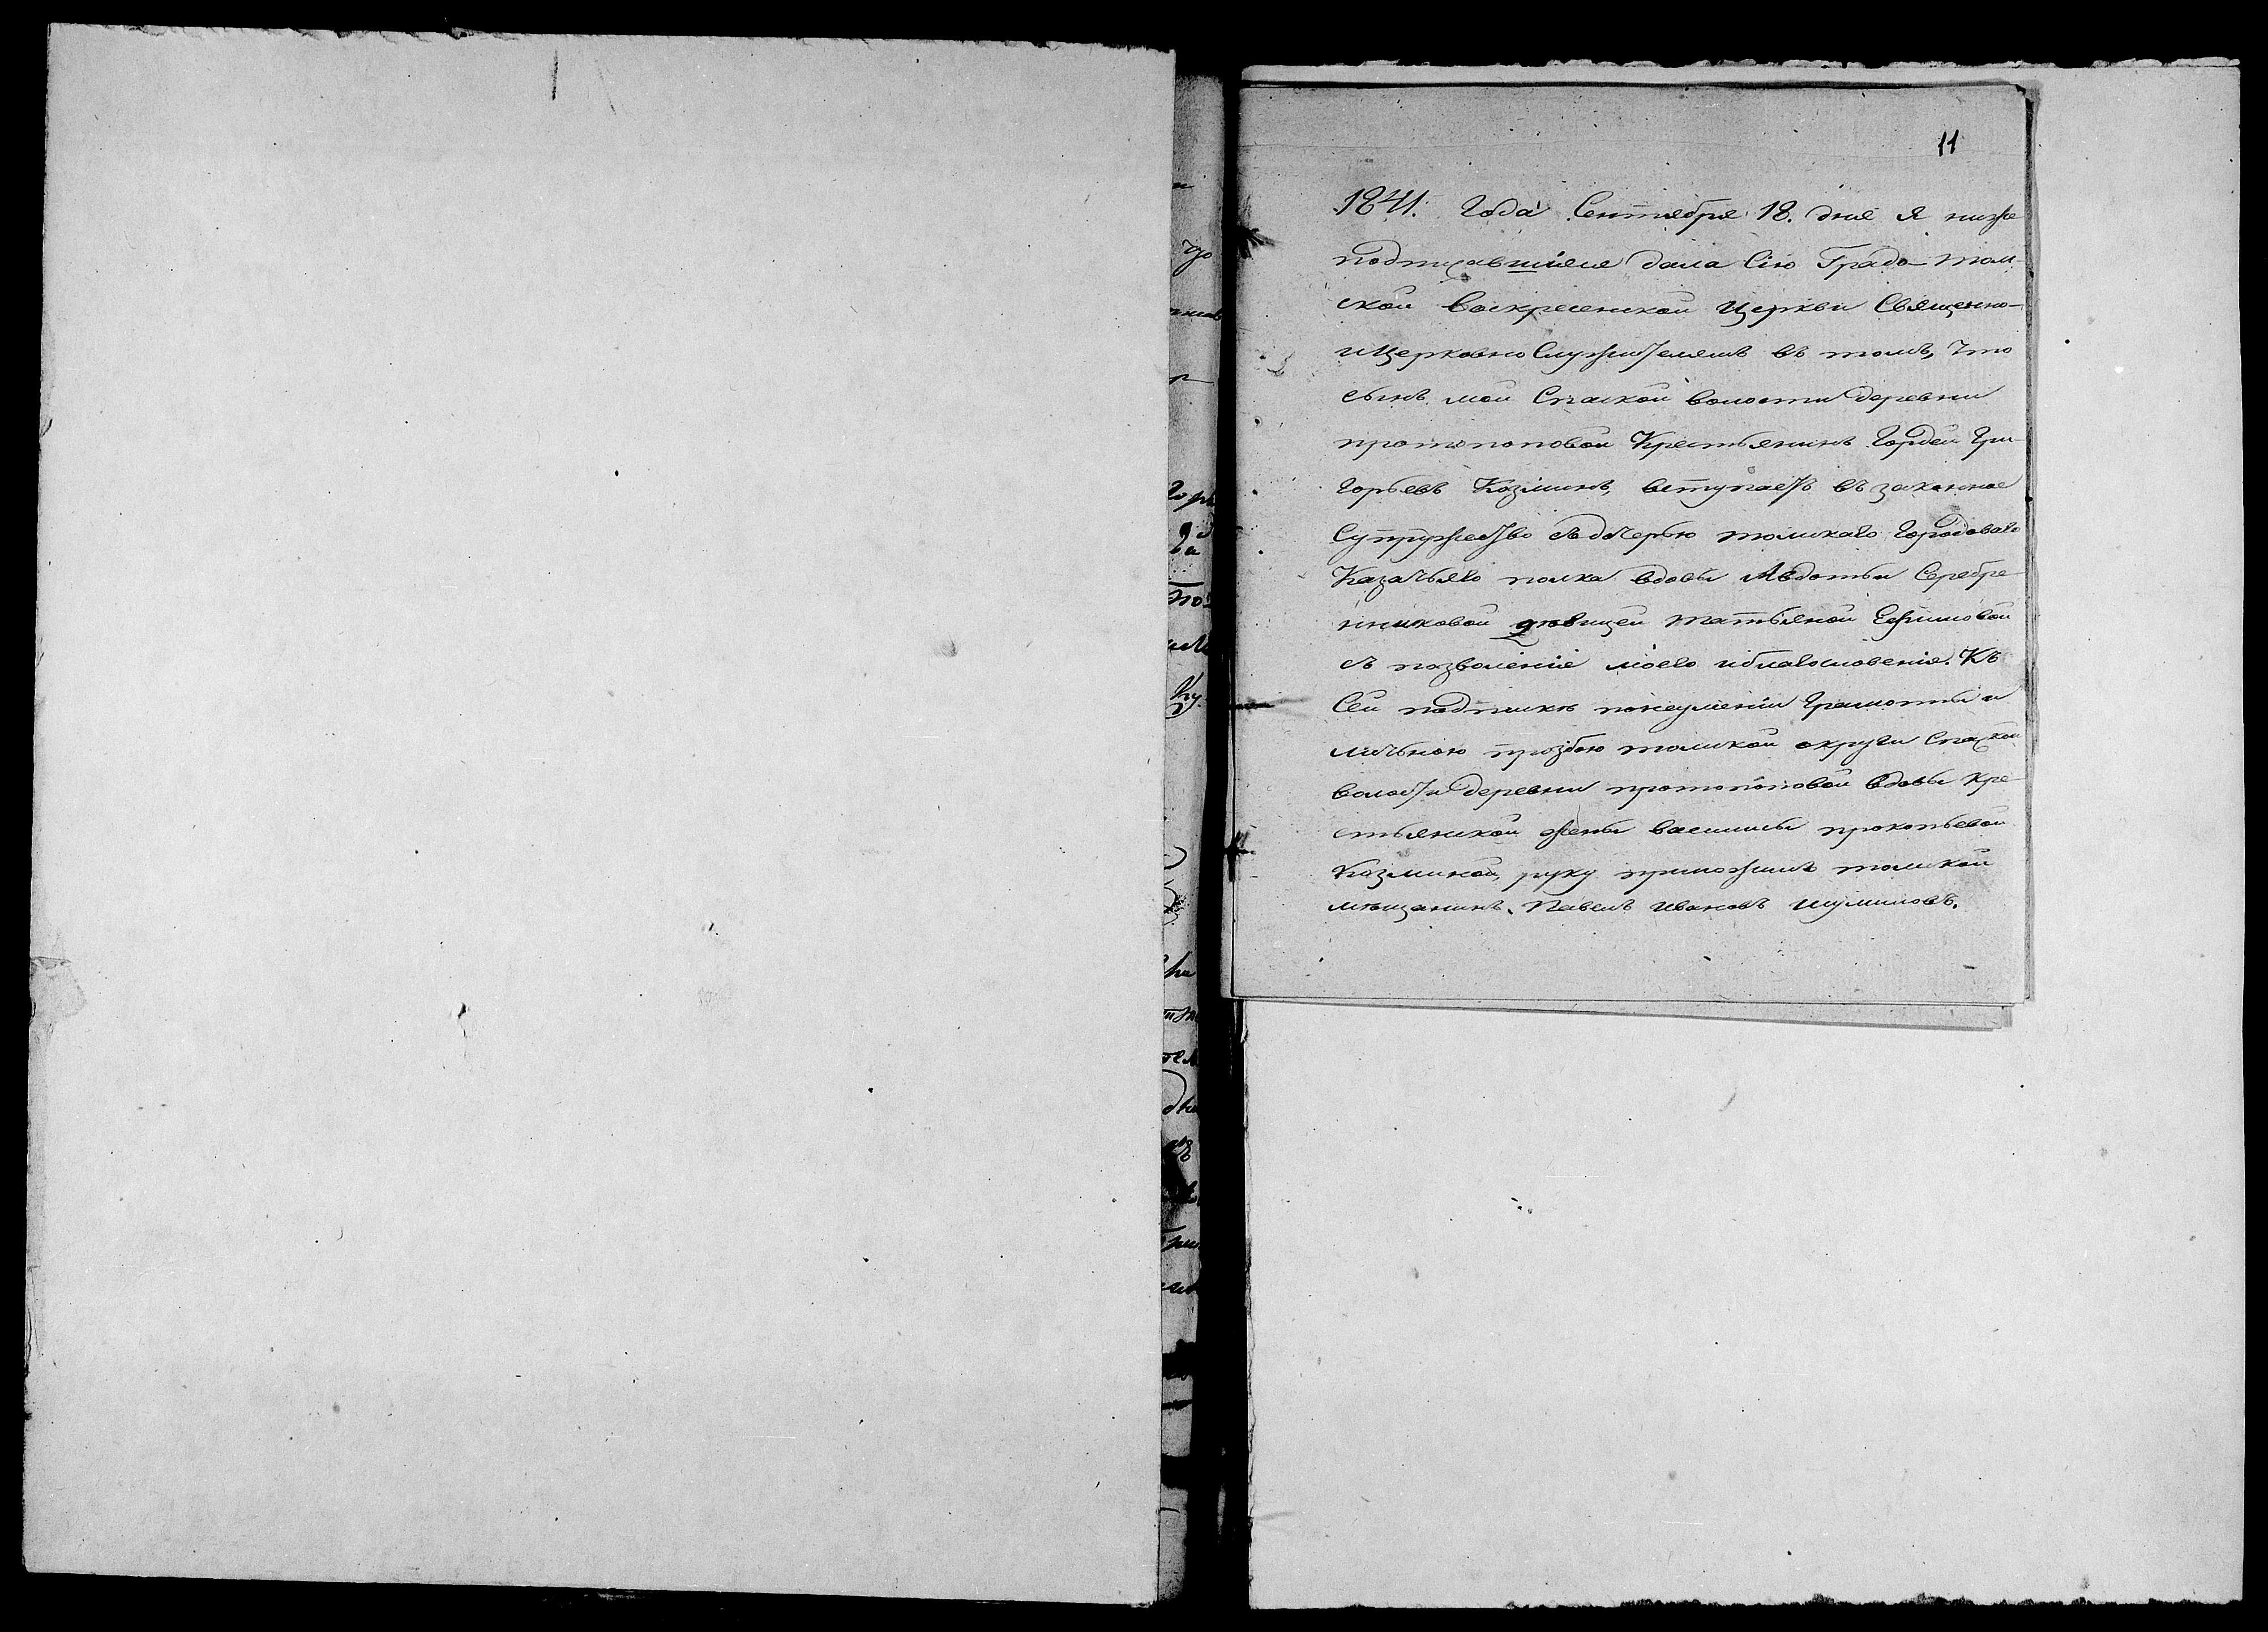 11
1841. Года Сентября 18. дня я ниже
подписавшіяся дала Сію Градо-Том-
ской Воскресенской Церкви Священно-
ицерковно Служителямъ въ томъ, что
сынъ мой Спаской волости деревни
протопоповой Крестьянинъ Гордей Гри-
горьевъ Козминъ, вступаетъ въ законное
Супружество сьдочерью томскаго Городоваго
Казачьяго полка вдовы Авдотьи Серебре
нниковой дѣвицей татьяной Ефимовой
съ позволеніе моего иблагословенія. Къ
Сей подпискѣ понеуменіи Грамоты и
личьною прозбою томской округи Спаской
волости деревни протопоповой вдовы Кре
стьянской жены василисы прокопьевой
Козминой, руку приложилъ томской
мѣщанинъ. Павелъ Ивановъ шумиловъ.